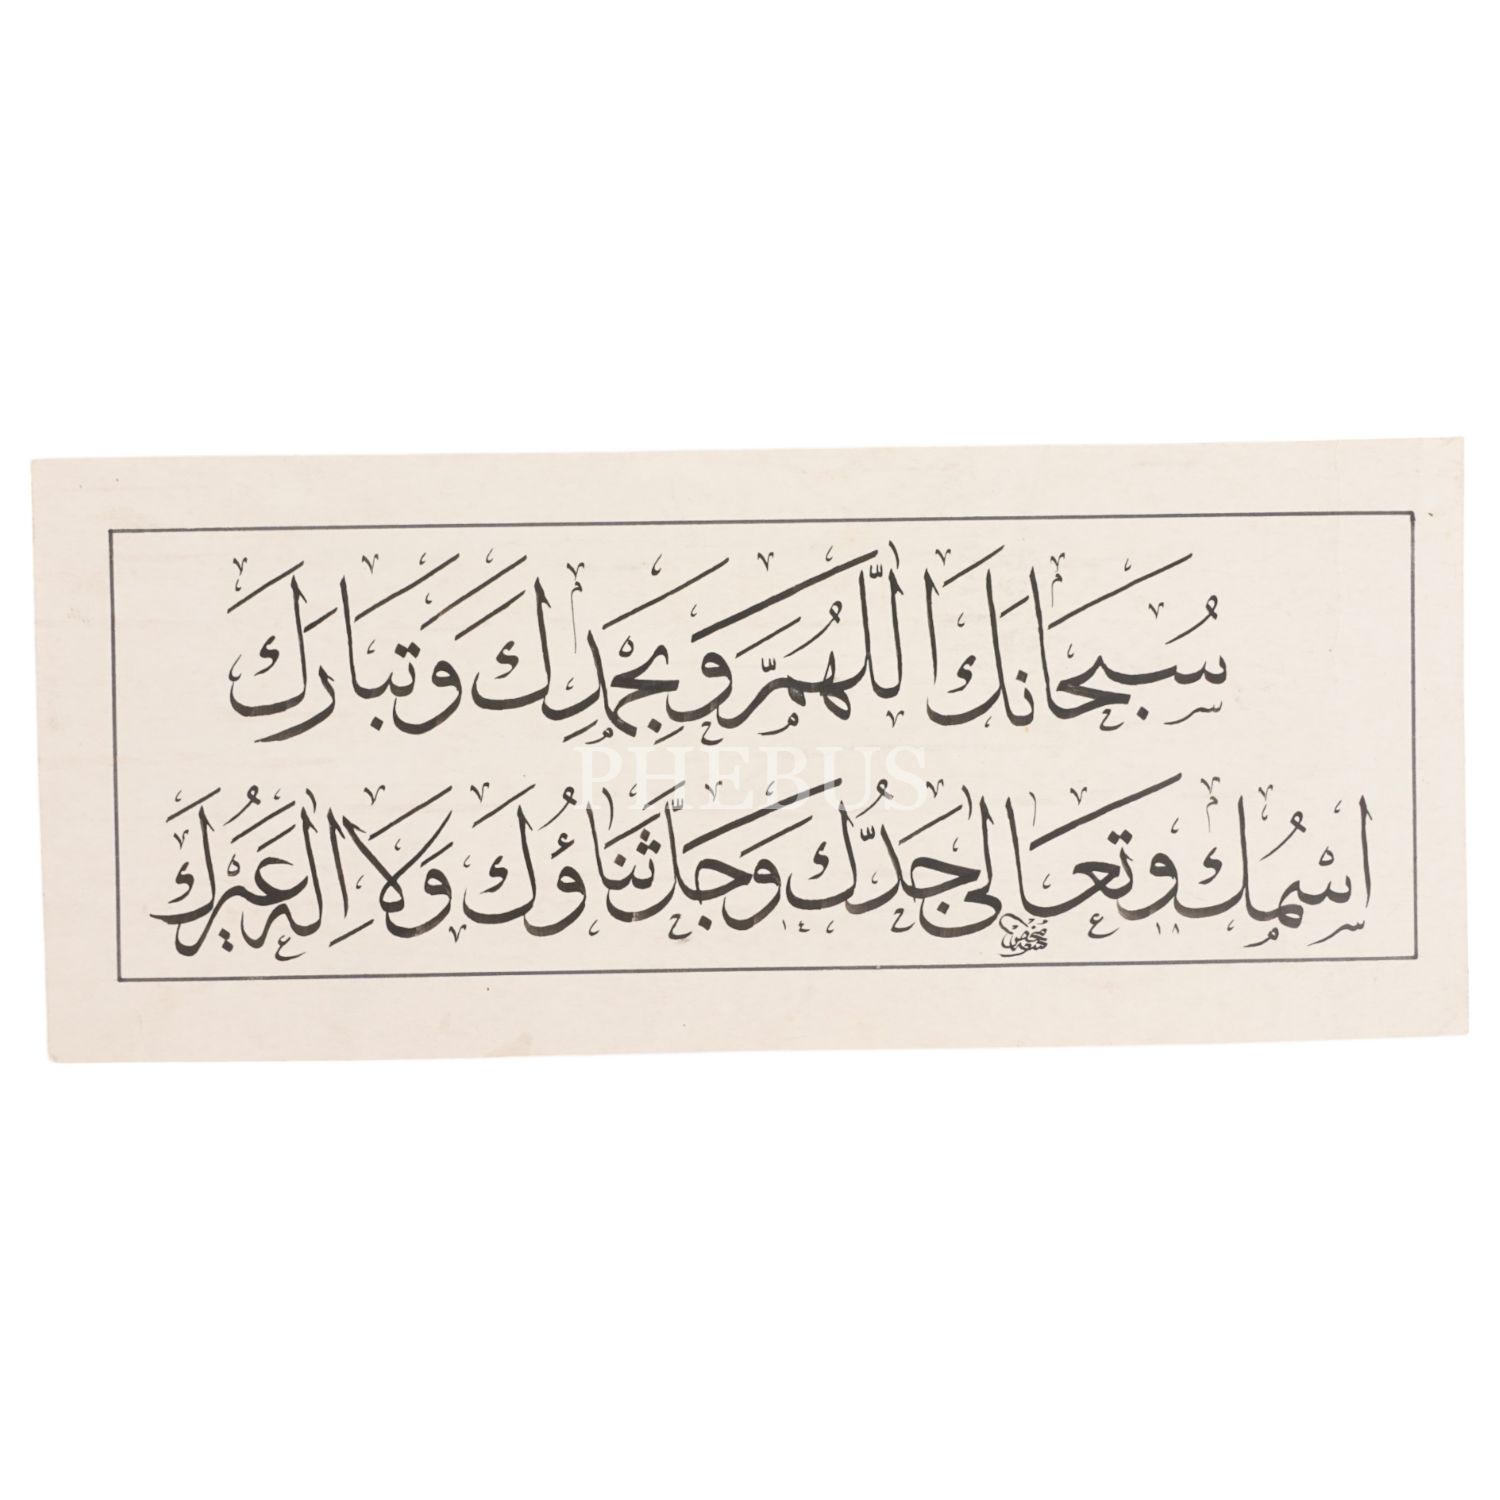 سُبْحَانَكَ اللّٰهُمَّ وَبِحَمْدِكَ وَتَبَارَكَ
اسْمُكَ وَتَعَالىٰ جَدُّكَ وَجَلَّ ثَنَاؤُكَ وَلَا اِلٰهَ غَيْرُكَ
PHEBUS